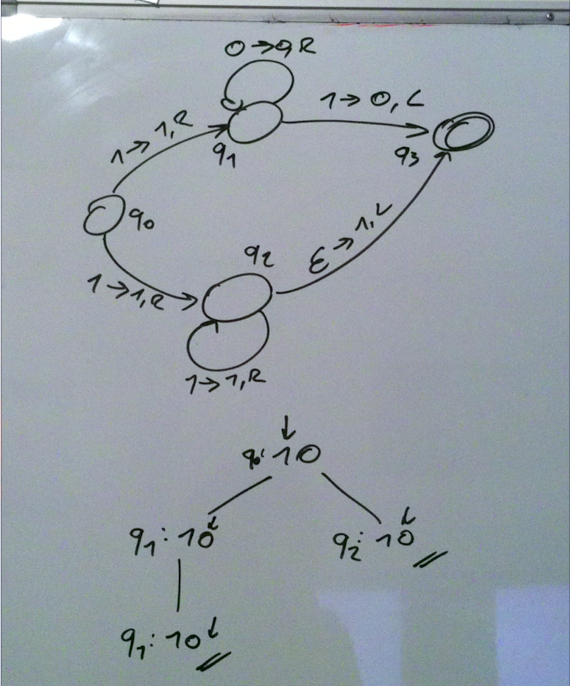 0→0,R
1→0,L
1→1,R
q1
q3
q0
q2
ε→1,L
1→1,R
1→1,R
q0: 10
q1: 10
q2: 10
q1: 10